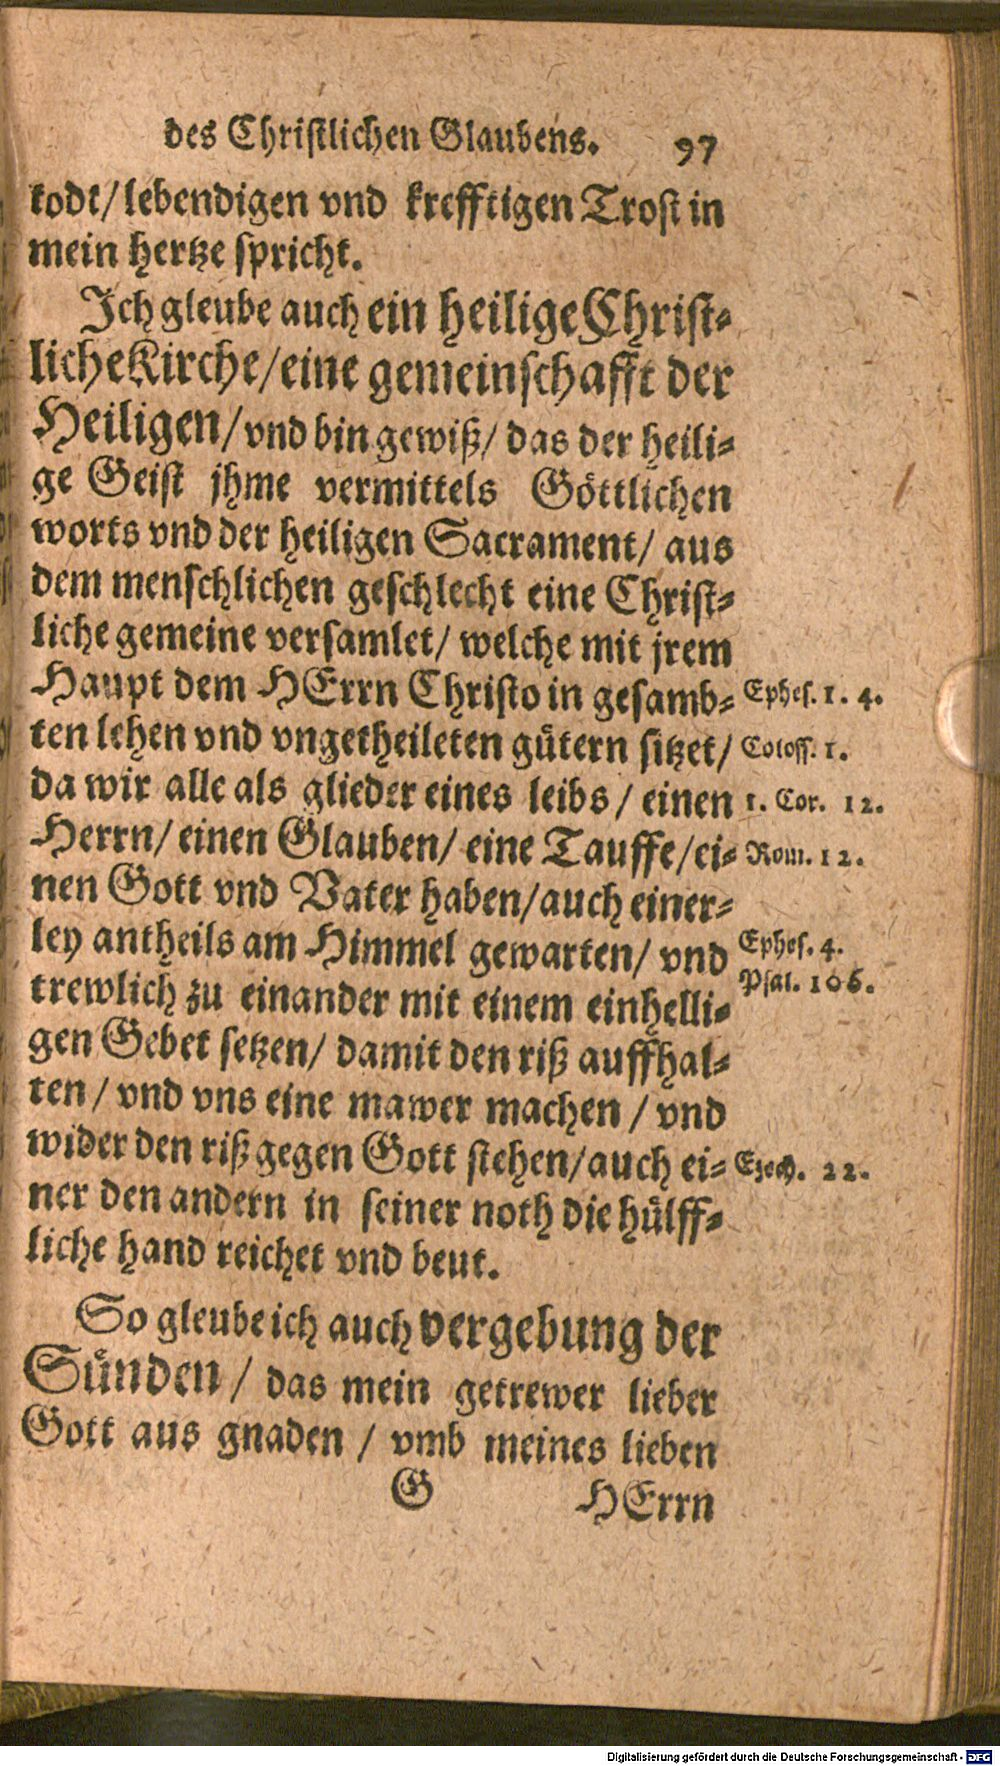 des Christlichen Glaubens. 97
todt/lebendigen vnd krefftigen Trost in
mein hertze spricht.
Ich gleube auch ein heilige Christ-
liche Kirche/eine gemeinschafft der
Heiligen/vnd bin gewiß/ das der heili-
ge Geist jhme vermittels Göttlichen
worts vnd der heiligen Sacrament/ aus
dem menschlichen geschlecht eine Christ-
liche gemeine versamlet/ welche mit jrem
Haupt dem HErrn Christo in gesamb- Ephes. 1. 4.
ten lehen vnd vngetheileten gütern sitzet/ Coloss. 1.
da wir alle als glieder eines leibs/ einen 1. Cor. 12.
Herrn/ einen Glauben/ eine Tauffe/ei- Rom. 12.
nen Gott vnd Vater haben/auch einer-
ley antheils am Himmel gewarten/ vnd Ephes. 4.
trewlich zu einander mit einem einhelli- Psal. 106.
gen Gebet setzen/ damit den riß auffhal-
ten/ vnd vns eine mawer machen / vnd
wider den riß gegen Gott stehen/auch ei- Ezech. 22.
ner den andern in seiner noth die hülff-
liche hand reichet vnd beut.
So gleube ich auch vergebung der
Sünden/ das mein getrewer lieber
Gott aus gnaden / vmb meines lieben
G HErrn
Digitalisierung gefördert durch die Deutsche Forschungsgemeinschaft - DFG